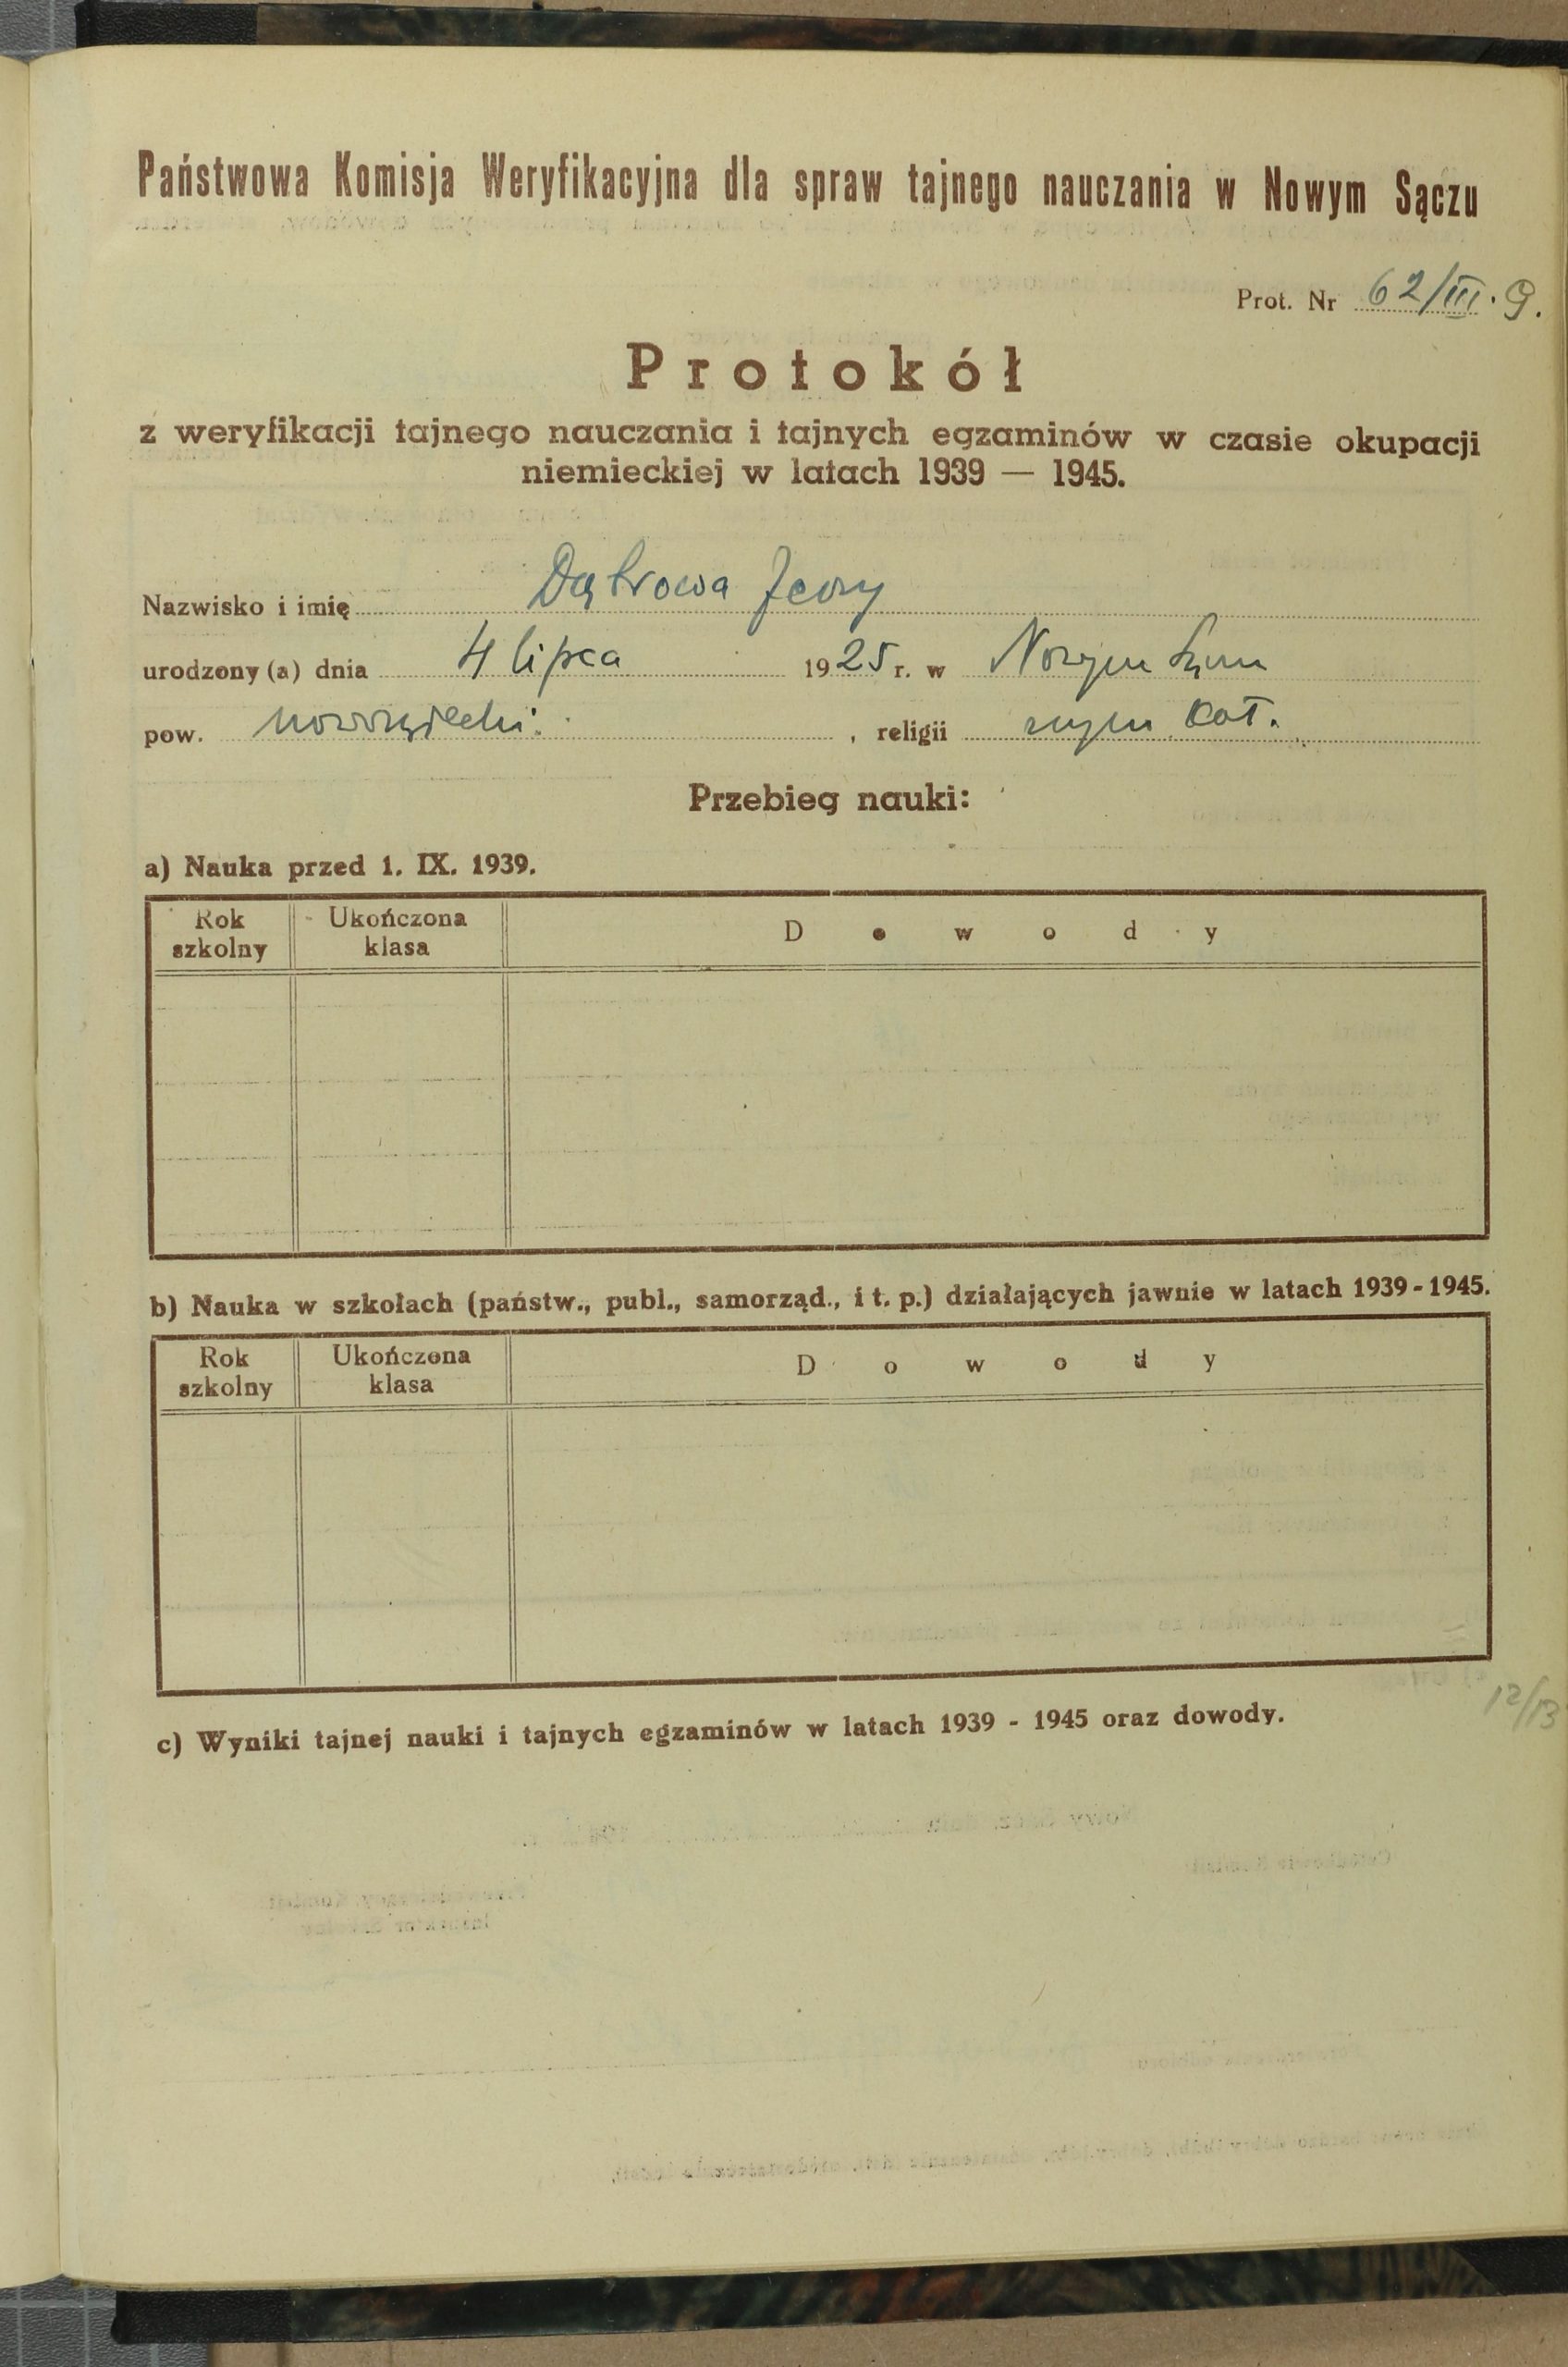 Państwowa Komisja Weryfikacyjna dla spraw tajnego nauczania w Nowym Sączu
Prot. Nr 62/III. g.
Protokół
z weryfikacji tajnego nauczania i tajnych egzaminów w czasie okupacji
niemieckiej w latach 1939 — 1945.
Nazwisko i imię Dąbrowa Jerzy
urodzony (a) dnia 4 lipca 1925 r. w Nowym Sączu
pow. nowosądecki. , religii rzym. kat.
Przebieg nauki:
a) Nauka przed 1. IX. 1939.
Rok szkolny Ukończona klasa Dowody
b) Nauka w szkołach (państw., publ., samorząd., i t. p.) działających jawnie w latach 1939-1945.
Rok szkolny Ukończona klasa Dowody
12/13
c) Wyniki tajnej nauki i tajnych egzaminów w latach 1939 - 1945 oraz dowody.